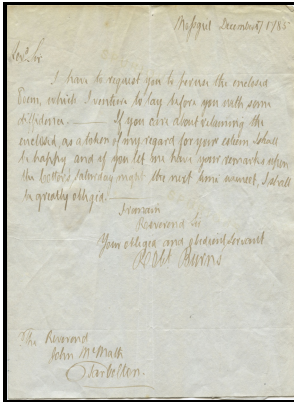 Mossgiel December 1785
Revd Sir
I have to request you to peruse the enclosed
Poem, which I venture to lay before you with some
diffidence. — If you care about retaining the
enclosed, as a token of my regard for your esteem I shall
be happy and if you let me have your remarks upon
the Cotter's Saturday night the next time we meet, I shall
be greatly obliged. —
I remain
Reverend Sir
Your obliged and obedient servant
Robt Burns
The Reverend
John McMath
Tarbolton.